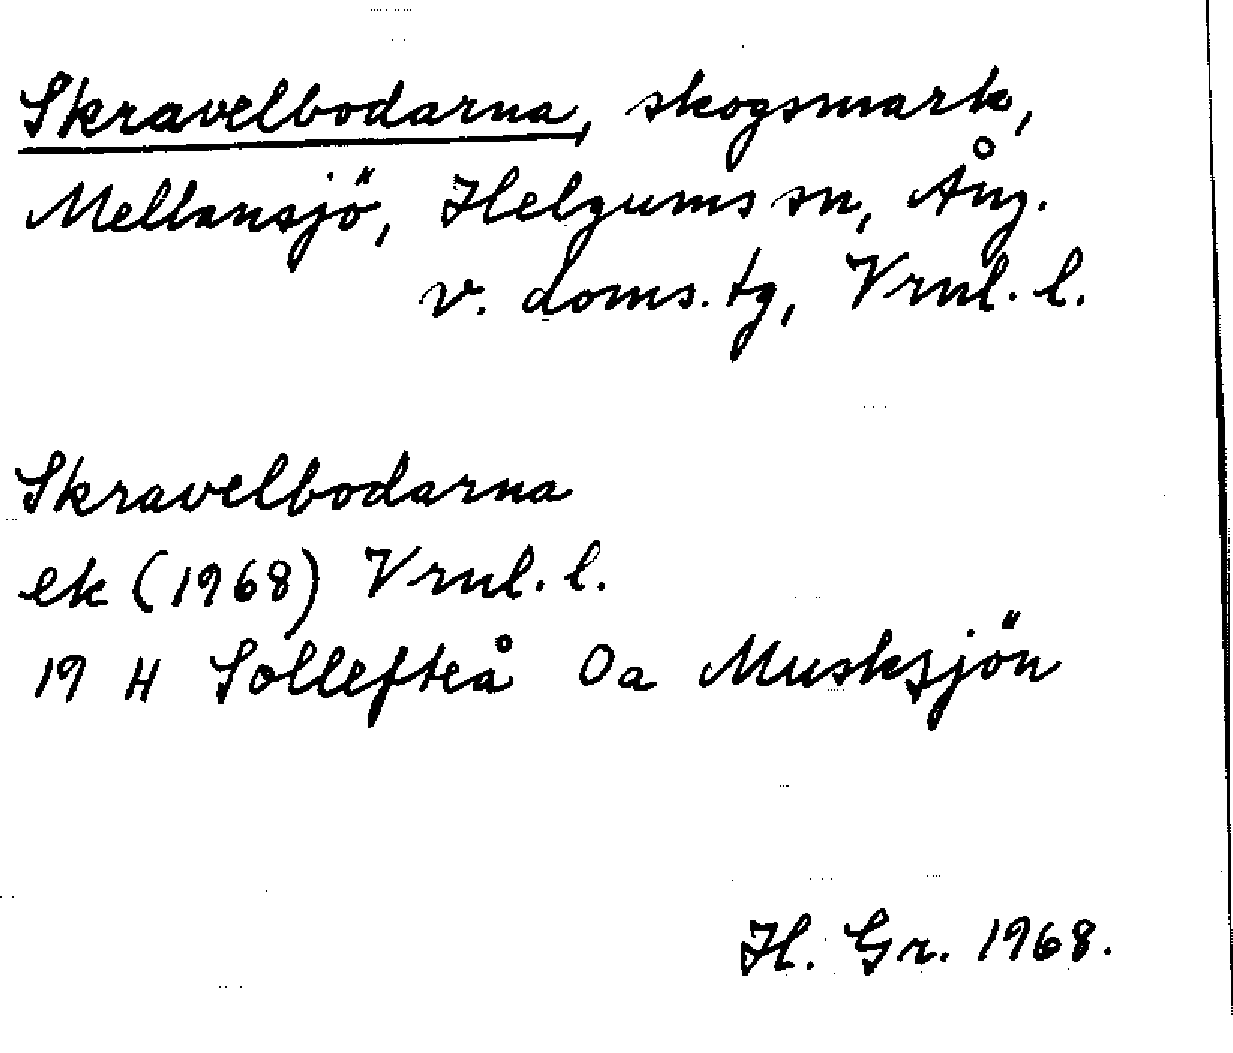 Skravelbodarna, skogsmark,
Mellansjö, Helgums sn, Ång.
v. doms. tg, Vrnl. l.
Skravelbodarna
ek (1968) Vrnl. l.
19 H Sollefteå Oa Musksjön
H. Gr. 1968.